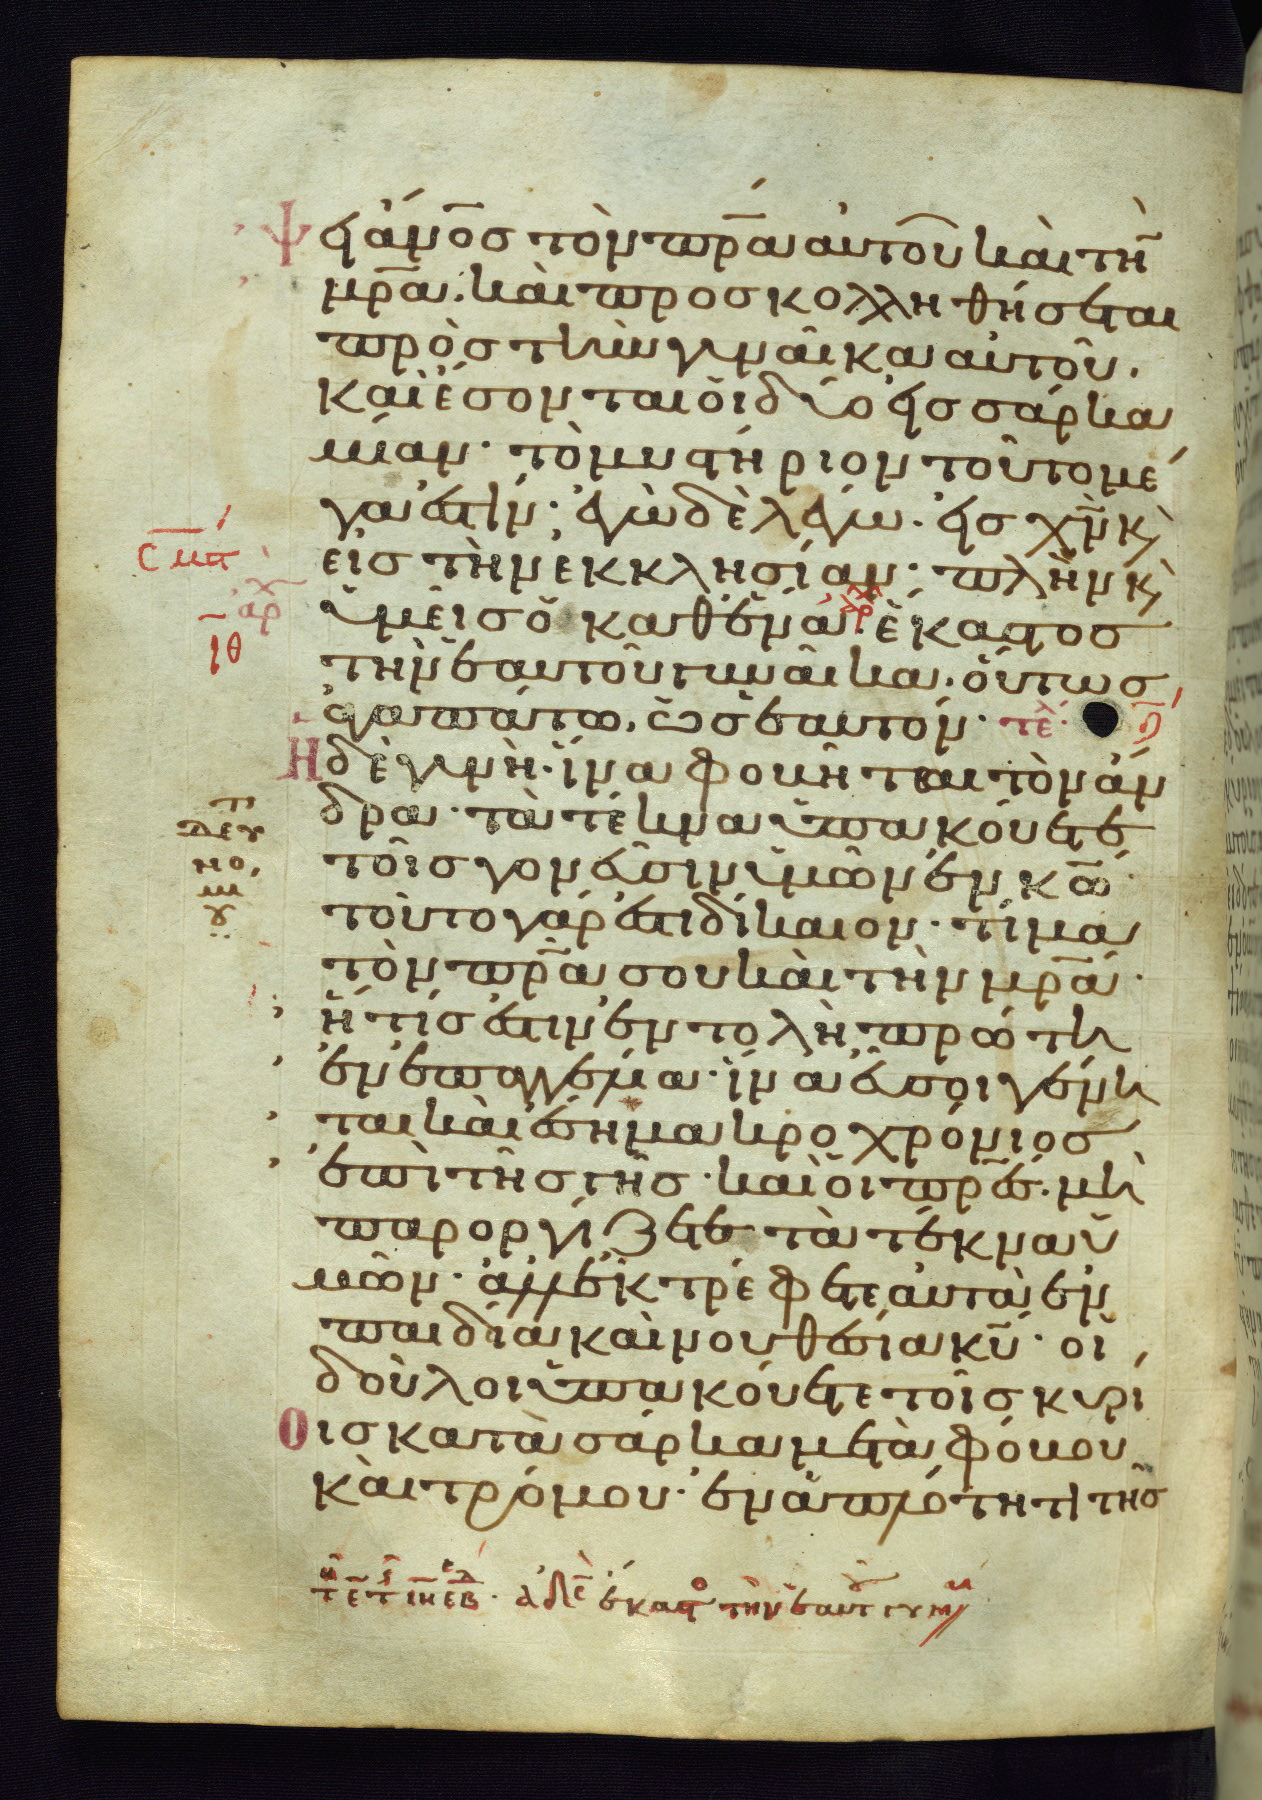 ψει ἄν̅ο̅ς̅ τὸν πρ̅α̅ αὐτοῦ καὶ τὴ̅
μρ̅α̅. καὶ προσκολληθήσεται
πρὸς τὴν γυναῖκα αὐτοῦ.
καὶ ἔσονται οἱ δύο εἰς σάρκα
μίαν· τὸ μυστήριον τοῦτο μέ
γα ἐστίν· ἐγὼ δὲ λέγω. εἰς χ̅ν̅ κ̀
εἰς τὴν ἐκκλησίαν· πλὴν κ̀
ὑμεῖς ὁ καθένα. ἕκαστος
τὴν ἑαυτοῦ γυναῖκα. οὕτως
ἀγαπάτω. ὡς ἑαυτόν· τε̅λ
Η δὲ γυνὴ. ἵνα φοβῆται τὸν ἄν
δρα· τὰ τέκνα ὑπακούετε
τοῖς γονεῦσιν ὑμῶν ἐν κ̅ω̅·
τοῦτο γάρ ἐστι δίκαιον· τίμα
τὸν πρ̅α̅ σου καὶ τὴν μρ̅α̅·
ἥτις ἐστιν ἐντολὴ πρώτη
ἐν ἐπαγγελία· ἵνα εὖ σοι γένη
ται καὶ ἔση μακροχρόνιος
ἐπὶ τῆς γῆς· καὶ οἱ πρ̅ε̅ς̅. μὴ
παροργίζετε τὰ τέκνα ὑ
μῶν· ἀλλ' ἐκτρέφετε αὐτὰ ἐν
παιδία καὶ νουθεσία κ̅υ̅· οἱ
δοῦλοι ὑπακούετε τοῖς κυρί
οις κατὰ σάρκα μετὰ φόβου
καὶ τρόμου· ἐν ἁπλότητι τῆς
ἀδε̅ ἕκαστο τὴν ἑαυτ γυν